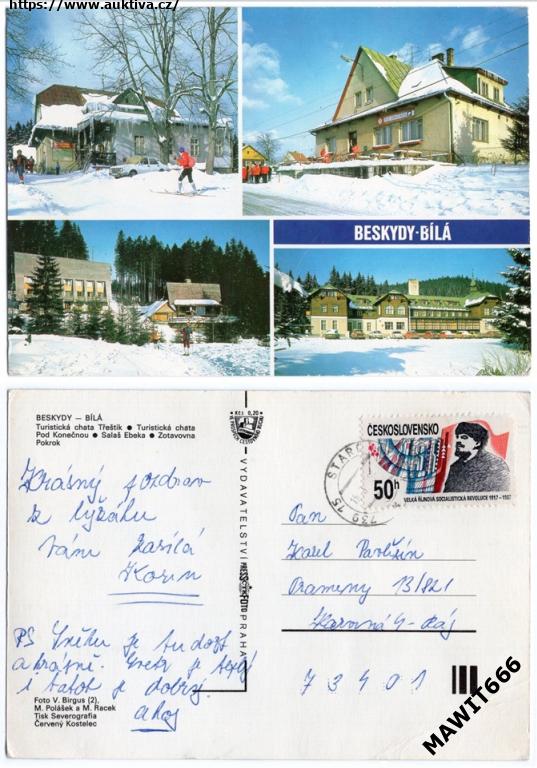 https://www.auktiva.cz/
BESKYDY-BÍLÁ
BESKYDY — BÍLÁ
Turistická chata Třeštík ● Turistická chata
Pod Konečnou ● Salaš Ebeka ● Zotavovna
Pokrok
Kčs 0,20
VYDAVATELSTVÍ PRESSFOTO PRAHA
ČESKOSLOVENSKO
50h
VELKÁ ŘÍJNOVÁ SOCIALISTICKÁ REVOLUCE 1917-1987
739 15
Krásný pozdrav
z lyžáku
Vám zasílá
Pan
Karel
Prameny 13/821
Karviná 4 - Ráj
73401
PS Sněhu je tu dost
a krásně.
i
je dobrý.
ahoj
Foto V. Birgus (2),
M. Polášek a M. Racek
Tisk Severografia
Červený Kostelec
MAWIT666